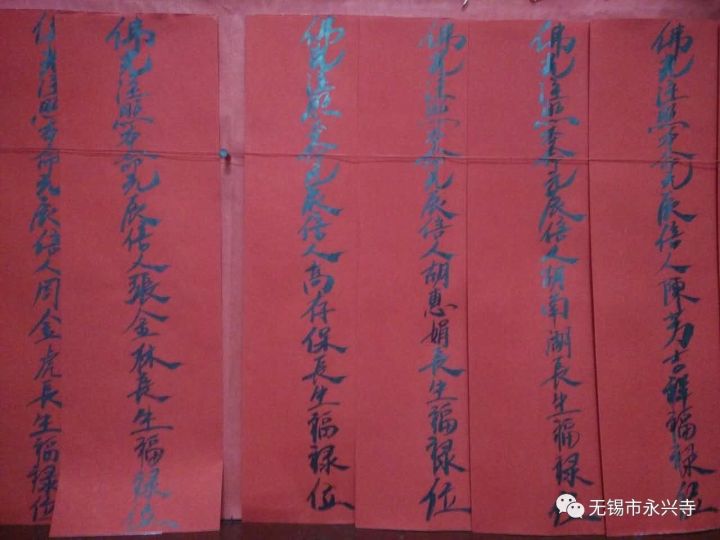 佛光注照本命元辰信人陳芳吉祥福禄位
佛光注照本命元辰信人胡南湖長生福禄位
佛光注照本命元辰信人胡惠娟長生福禄位
佛光注照本命元辰信人高存保長生福禄位
佛光注照本命元辰信人張金林長生福禄位
佛光注照本命元辰信人周金虎長生福禄位
无锡市永兴寺